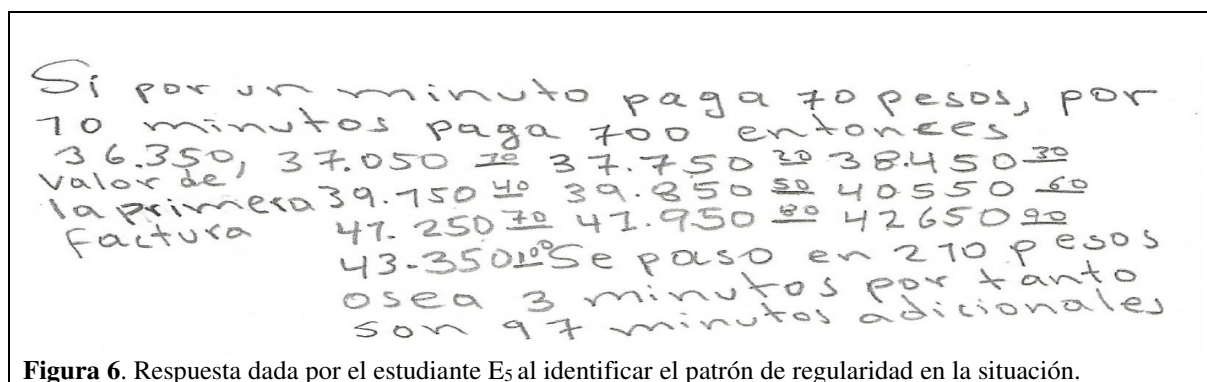 Si por un minuto paga 70 pesos, por
10 minutos paga 700 entonces
36.350, 37.050 10 37.750 20 38.450 30
valor de
la primera 39.150 40 39.850 50 40550 60
factura 41.250 70 41.950 80 42650 90
43.350 100 Se paso en 210 pesos
osea 3 minutos por tanto
son 97 minutos adicionales
Figura 6. Respuesta dada por el estudiante E5 al identificar el patrón de regularidad en la situación.